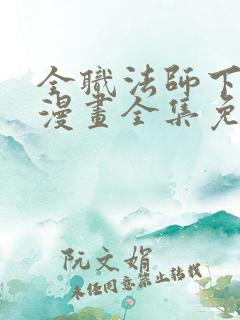 全職法師下
漫畫全集免
阮文娟
未经同意禁止转载